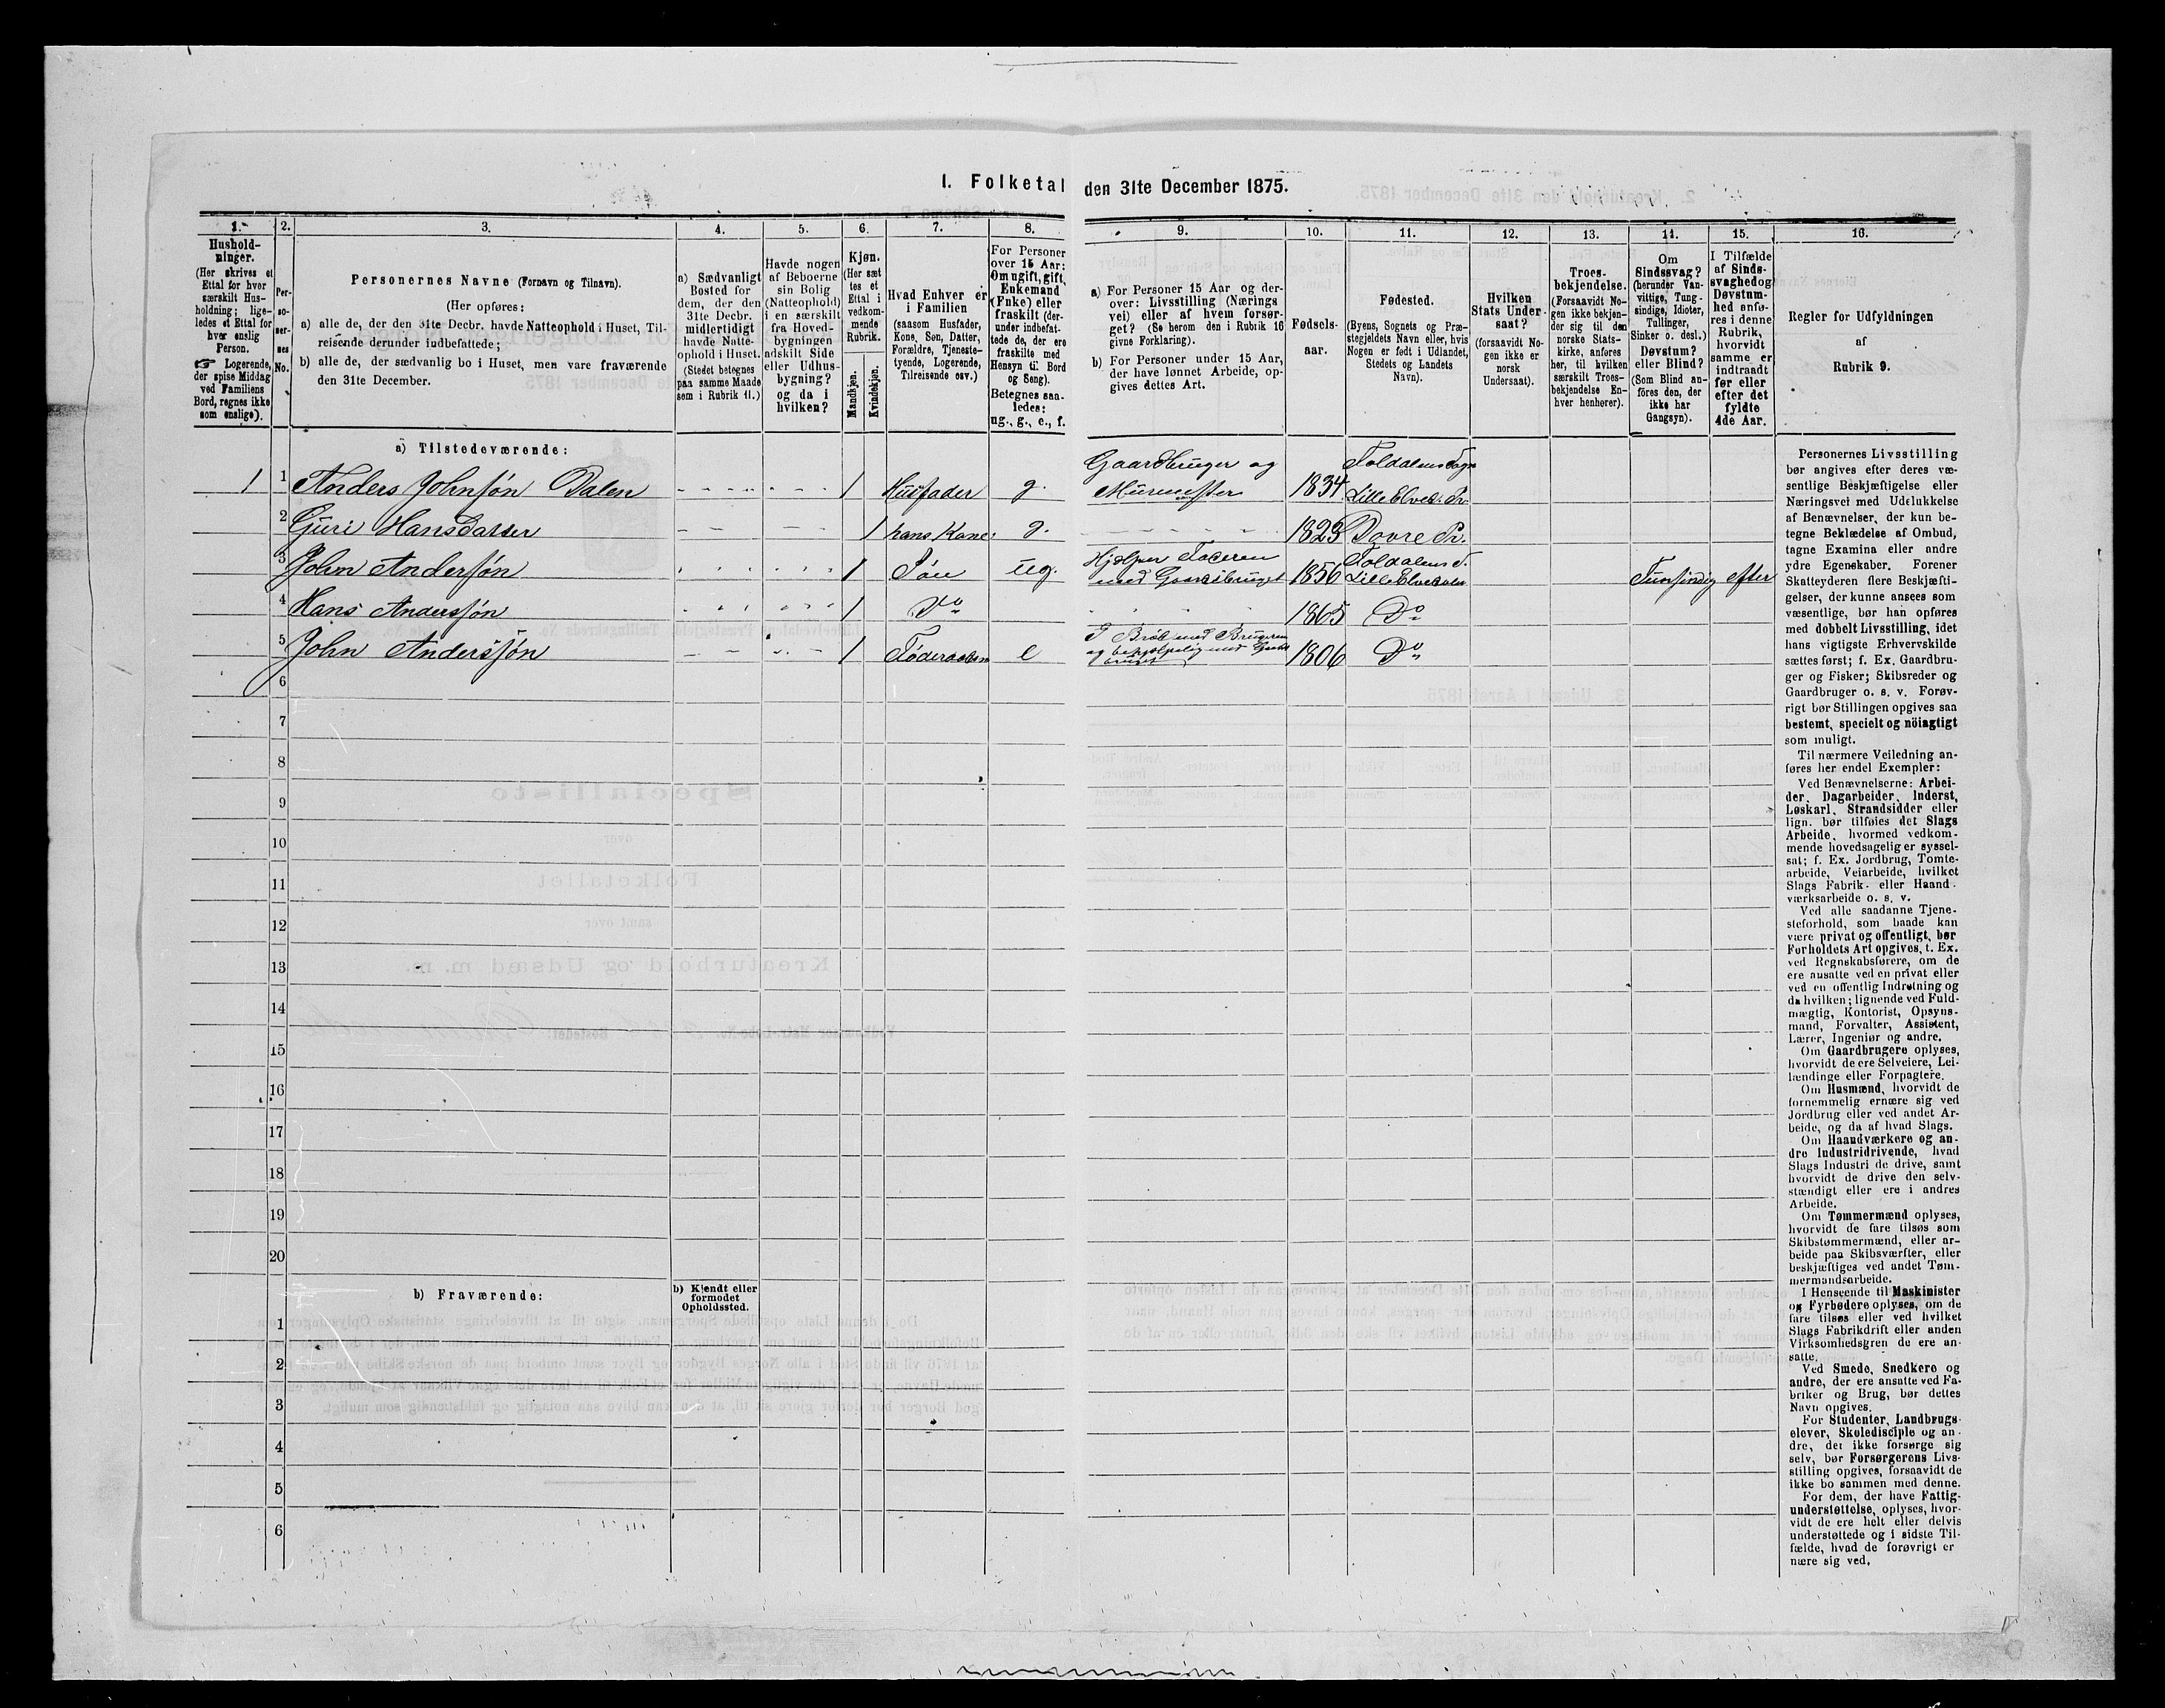 I. Folketal den 31te December 1875.
1.
Hushold-
ninger.
(Her skrives et
Ettal for hver
særskilt Hus-
holdning; lige-
ledes et Ettal for
hver enslig
Person.
☞ Logerende,
der spise Middag
ved Familiens
Bord, regnes ikke
som enslige).
2.
Per-
so-
ner-
nes
No.
3.
Personernes Navne (Fornavn og Tilnavn).
(Her opføres:
a) alle de, der den 31te Decbr. havde Natteophold i Huset, Til-
reisende derunder indbefattede;
b) alle de, der sædvanlig bo i Huset, men vare fraværende
den 31te December.
4.
a) Sædvanligt
Bosted for
dem, der den
31te Decbr.
midlertidigt
havde Natte-
ophold i Huset.
(Stedet betegnes
paa samme Maade
som i Rubrik 11.)
5.
Havde nogen
af Beboerne
sin Bolig
(Natteophold)
i en særskilt
fra Hoved-
bygningen
adskilt Side
eller Udhus-
bygning?
og da i
hvilken?
6.
Kjøn.
(Her sæt
tes et
Ettal i
vedkom-
mende
Rubrik.
Mandkjøn.
Kvindekjøn.
7.
Hvad Enhver er
i Familien
(saasom Husfader,
Kone, Søn, Datter,
Forældre, Tjeneste-
tyende, Logerende,
Tilreisende osv.)
8.
For Personer
over 15 Aar:
Om ugift, gift,
Enkemand
(Enke) eller
fraskilt (der-
under indbefat-
tede de, der ere
fraskilte med
Hensyn til Bord
og Seng).
Betegnes saa-
ledes:
ug., g., e., f.
9.
a) For Personer 15 Aar og der-
over: Livsstilling (Nærings
vei) eller af hvem forsør-
get? (Se herom den i Rubrik 16
givne Forklaring).
b) For Personer under 15 Aar,
der have lønnet Arbeide, op-
gives dettes Art.
10.
Fødsels-
aar.
11.
Fødested.
(Byens, Sognets og Præ-
stegjeldets Navn eller, hvis
Nogen er født i Udlandet,
Stedets og Landets
Navn).
12.
Hvilken
Stats Under-
saat?
(forsaavidt No-
gen ikke er
norsk
Undersaat).
13.
Troes-
bekjendelse.
(Forsaavidt No-
gen ikke bekjen-
der sig til den
norske Stats-
kirke, anføres
her, til hvilken
særskilt Troes-
bekjendelse En-
hver henhører).
14.
Om
Sindssvag?
(herunder Van-
vittige, Tung-
sindige, Idioter,
Tullinger,
Sinker o. desl.)
Døvstum?
eller Blind?
(Som Blind an-
føres den, der
ikke har
Gangsyn).
15.
I Tilfælde
af Sinds-
svaghed og
Døvstum-
hed anfø-
res i denne
Rubrik,
hvorvidt
samme er
indtraadt
før eller
efter det
fyldte
4de Aar.
16.
Regler for Udfyldningen
af
Rubrik 9.
a) Tilstedeværende:
1 1 Anders Johnsøn Dalen 1 Husfader g. Gaardbruger og Muremester 1834 Foldalens Sogn Lille Elved. Pr.
2 Guri Hansdatter 1 hans Kone g. 1823 Dovre Pr.
3 John Andersøn 1 Søn ug. Hjelper Faderen med Gaardsbruget 1856 Foldalens S. Lille Elvedalen Tungsindig efter
4 Hans Anderssøn 1 Do 1865 Do
5 John Anderssøn 1 Føderaadsm e 1806 Do
6
7
8
9
10
11
12
13
14
15
16
17
18
19
20
b) Fraværende:
b) Kjendt eller
formodet
Opholdssted.
1
2
3
4
5
6
Personernes Livsstilling
bør angives efter deres væ-
sentlige Beskjæftigelse eller
Næringsvei med Udelukkelse
af Benævnelser, der kun be-
tegne Beklædelse af Ombud,
tagne Examina eller andre
ydre Egenskaber. Forener
Skatteyderen flere Beskjæfti-
gelser, der kunne ansees som
væsentlige, bør han opføres
med dobbelt Livsstilling, idet
hans vigtigste Erhvervskilde
sættes først; f. Ex. Gaardbru-
ger og Fisker; Skibsreder og
Gaardbruger o. s. v. Forøv-
rigt bør Stillingen opgives saa
bestemt, specielt og nöiagtigt
som muligt.
Til nærmere Veiledning an-
føres her endel Exempler:
Ved Benævnelserne: Arbei-
der, Dagarbeider, Inderst,
Løskarl, Strandsidder eller
lign. bør tilføies det Slags
Arbeide, hvormed vedkom-
mende hovedsagelig er syssel-
sat; f. Ex. Jordbrug, Tomte-
arbeide, Veiarbeide, hvilket
Slags Fabrik- eller Haand-
værksarbeide o. s. v.
Ved alle saadanne Tjene-
steforhold, som baade kan
være privat og offentligt, bør
Forholdets Art opgives, t. Ex.
ved Regnskabsførere, om de
ere ansatte ved en privat eller
ved en offentlig Indretning og
da hvilken; lignende ved Fuld-
mægtig, Kontorist, Opsyns-
mand, Forvalter, Assistent,
Lærer, Ingeniør og andre.
Om Gaardbrugere oplyses,
hvorvidt de ere Selveiere, Lei-
lændinge eller Forpagtere.
Om Husmænd, hvorvidt de
fornemmelig ernære sig ved
Jordbrug eller ved andet Ar-
beide, og da af hvad Slags.
Om Haandværkere og an-
dre Industridrivende, hvad
Slags Industri de drive, samt
hvorvidt de drive den selv-
stændigt eller ere i andres
Arbeide.
Om Tømmermænd oplyses,
hvorvidt de fare tilsøs som
Skibstømmermænd, eller ar-
beide paa Skibsværfter, eller
beskjæftiges ved andet Tøm-
mermandsarbeide.
I Henseende til Maskinister
og Fyrbødere oplyses, om de
fare tilsøs eller ved hvilket
Slags Fabrikdrift eller anden
Virksomhedsgren de ere an-
satte.
Ved Smede, Snedkere og
andre, der ere ansatte ved Fa-
briker og Brug, bør dettes
Navn opgives.
For Studenter, Landbrugs-
elever, Skoledisciple og an-
dre, der ikke forsørge sig
selv, bør Forsørgerens Livs-
stilling opgives, forsaavidt de
ikke bo sammen med denne.
For dem, der have Fattig-
understøttelse, oplyses, hvor-
vidt de ere helt eller delvis
understøttede og i sidste Til-
fælde, hvad de forøvrigt er
nære sig ved.